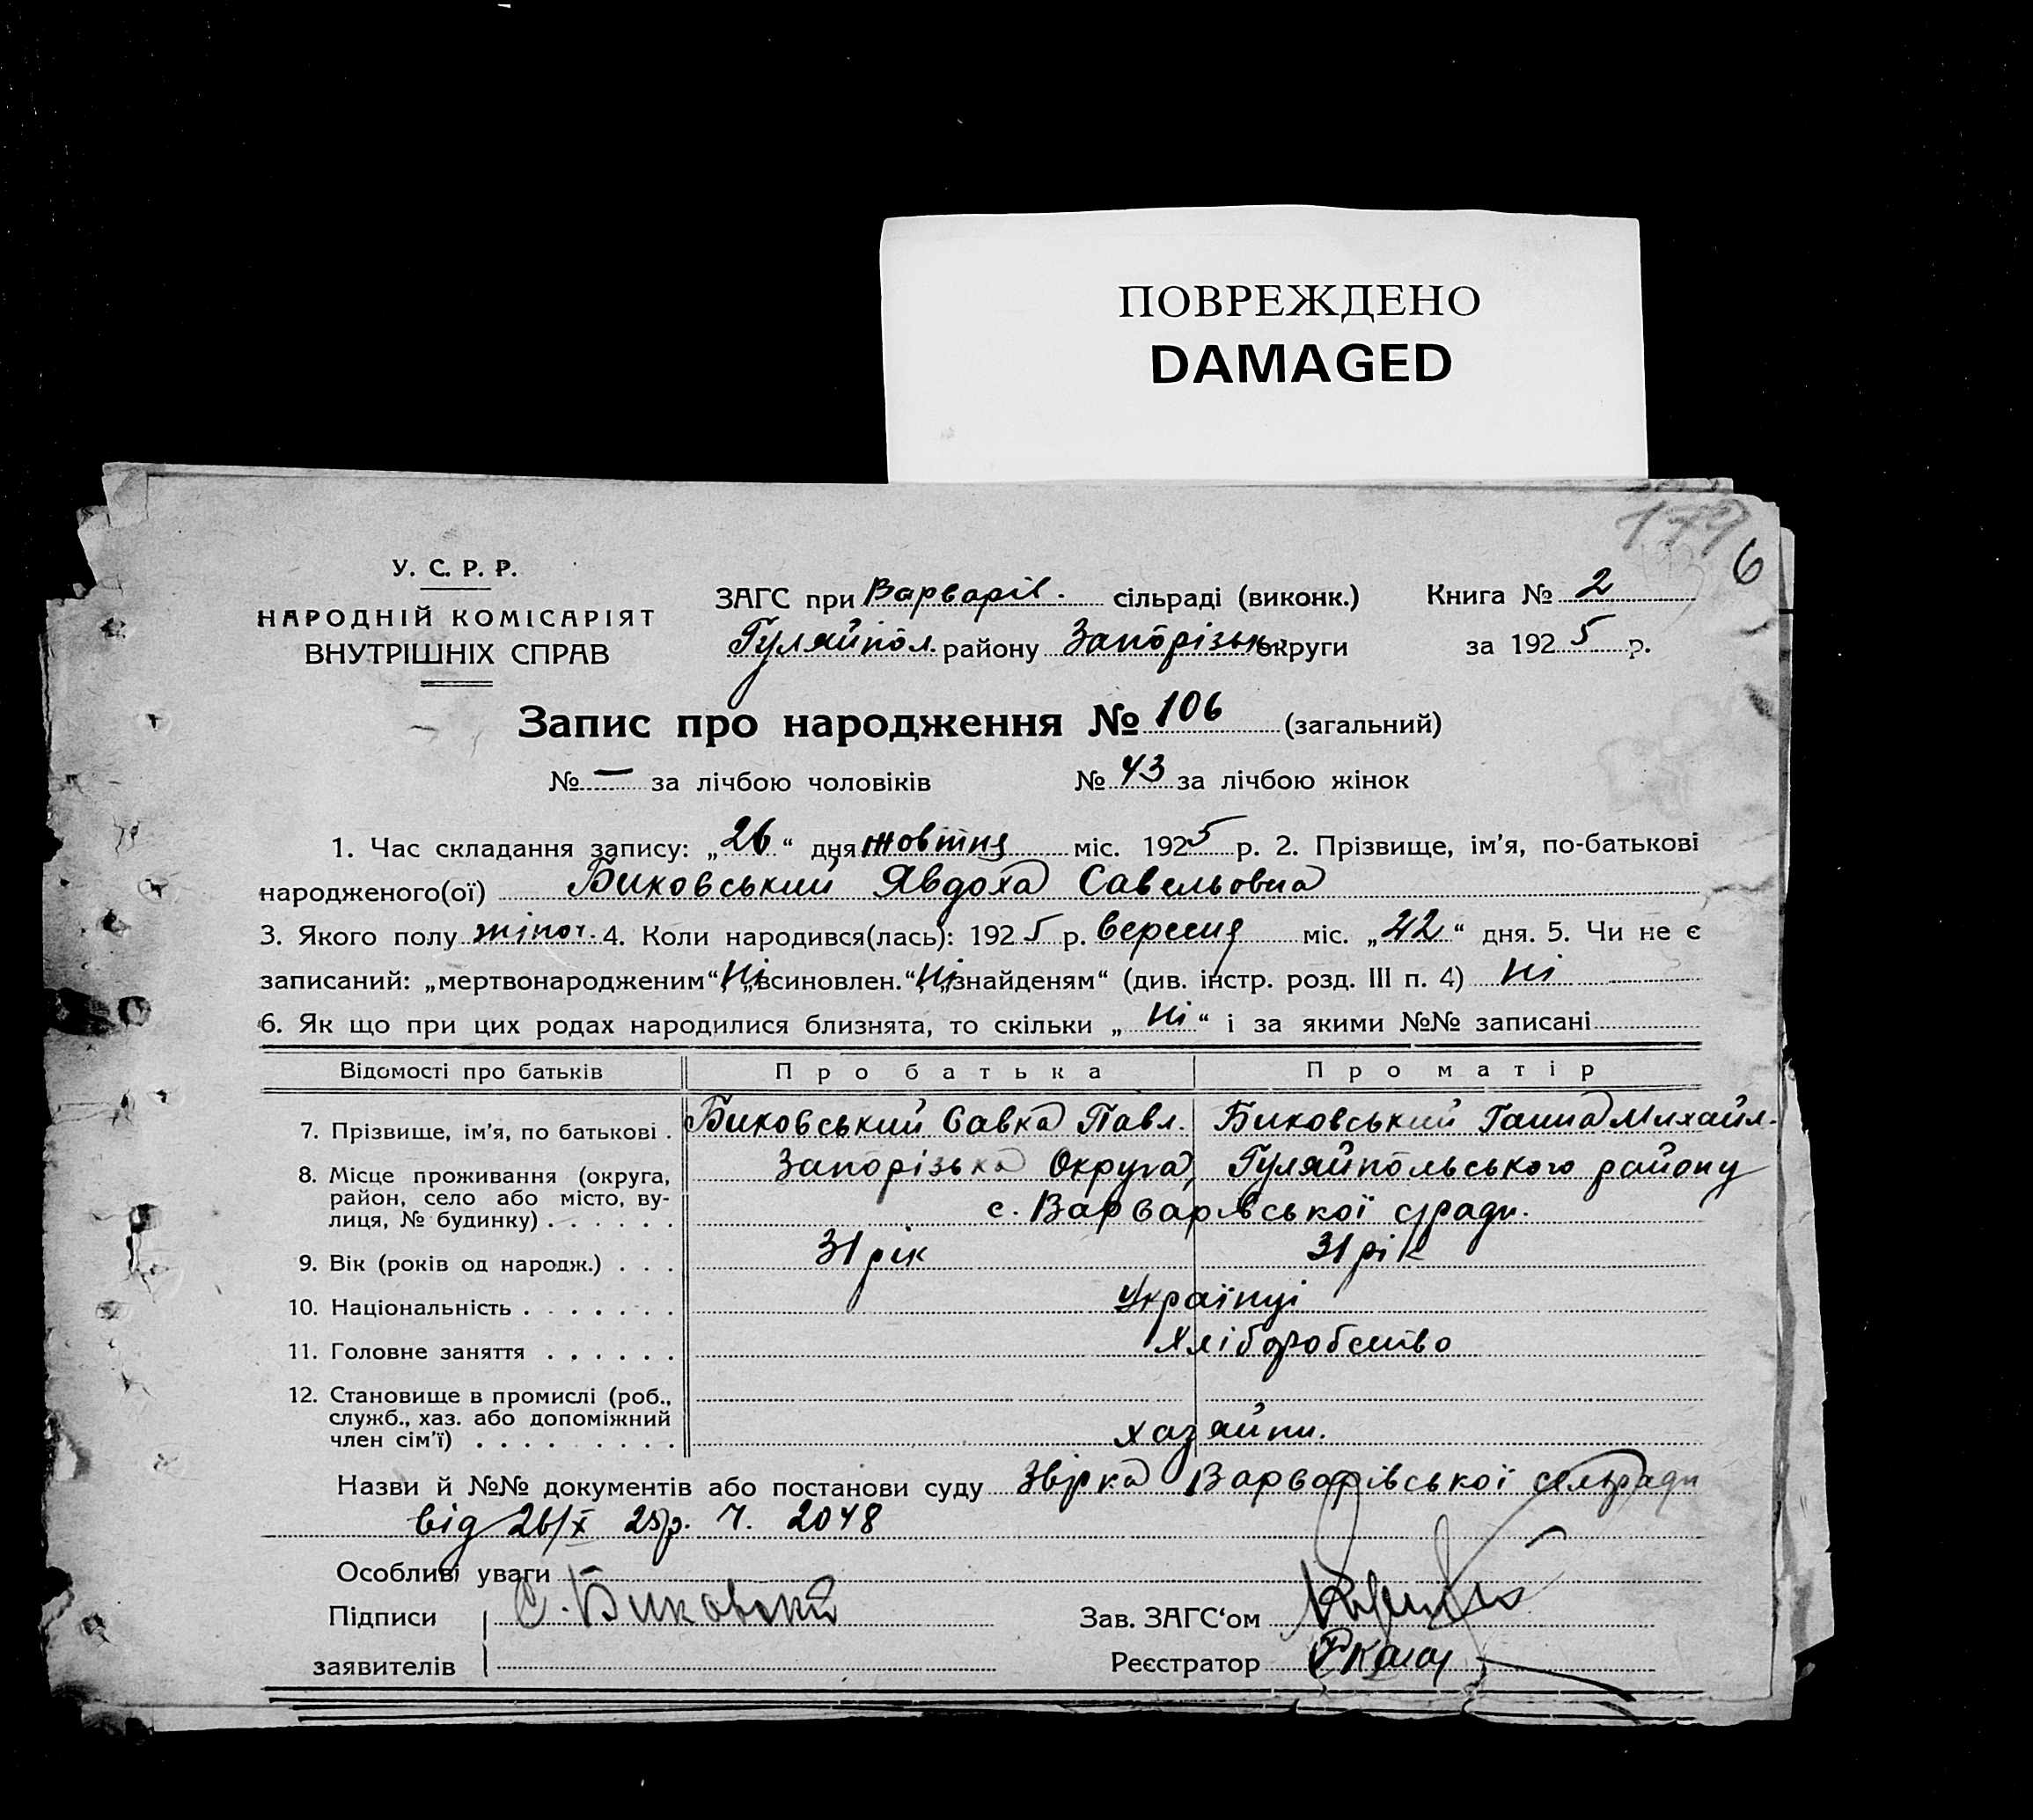 ПОВРЕЖДЕНО
DAMAGED
179
6
У. С. Р. Р.
НАРОДНІЙ КОМІСАРІЯТ
ВНУТРІШНІХ СПРАВ
ЗАГС при Варварів. сільраді (виконк.) Книга № 2
Гуляйпол. району Запорізьк. округи за 1925 р.
Запис про народження № 106 (загальний)
№ — за лічбою чоловіків № 43 за лічбою жінок
1. Час складання запису: „26“ дня жовтня міс. 1925 р. 2. Прізвище, ім'я, по-батькові
народженого(ої) Биковський Явдоха Савельовна
3. Якого полу жіноч. 4. Коли народився(лась): 1925 р. вересня міс. „22“ дня. 5. Чи не є
записаний: „мертвонародженим“, Ні „всиновлен.“, Ні „знайденям“ (див. інстр. розд. III п. 4) Ні
6. Як що при цих родах народилися близнята, то скільки „Ні“ і за якими №№ записані
Відомості про батьків Про батька Про матір
7. Прізвище, ім'я, по батькові . Биковський Савка Павл. Биковський Ганна Михайл.
8. Місце проживання (округа, район, село або місто, вулиця, № будинку) . . . . . . Запорізька Округа, Гуляйпольського району
с. Варварівської сради.
9. Вік (років од народж.) . . . 31 рік 31 рік
10. Національність . . . . . . . Українці
11. Головне заняття . . . . . . Хліборобство
12. Становище в промислі (роб., служб., хаз. або допоміжний член сім'ї) . . . . . . . . . хазяйни.
Назви й №№ документів або постанови суду Звірка Варварівської сельради
від 26/X 25р. Ч. 2048
Особливі уваги
Підписи С. Биковский Зав. ЗАГС‘ом
заявителів Реєстратор